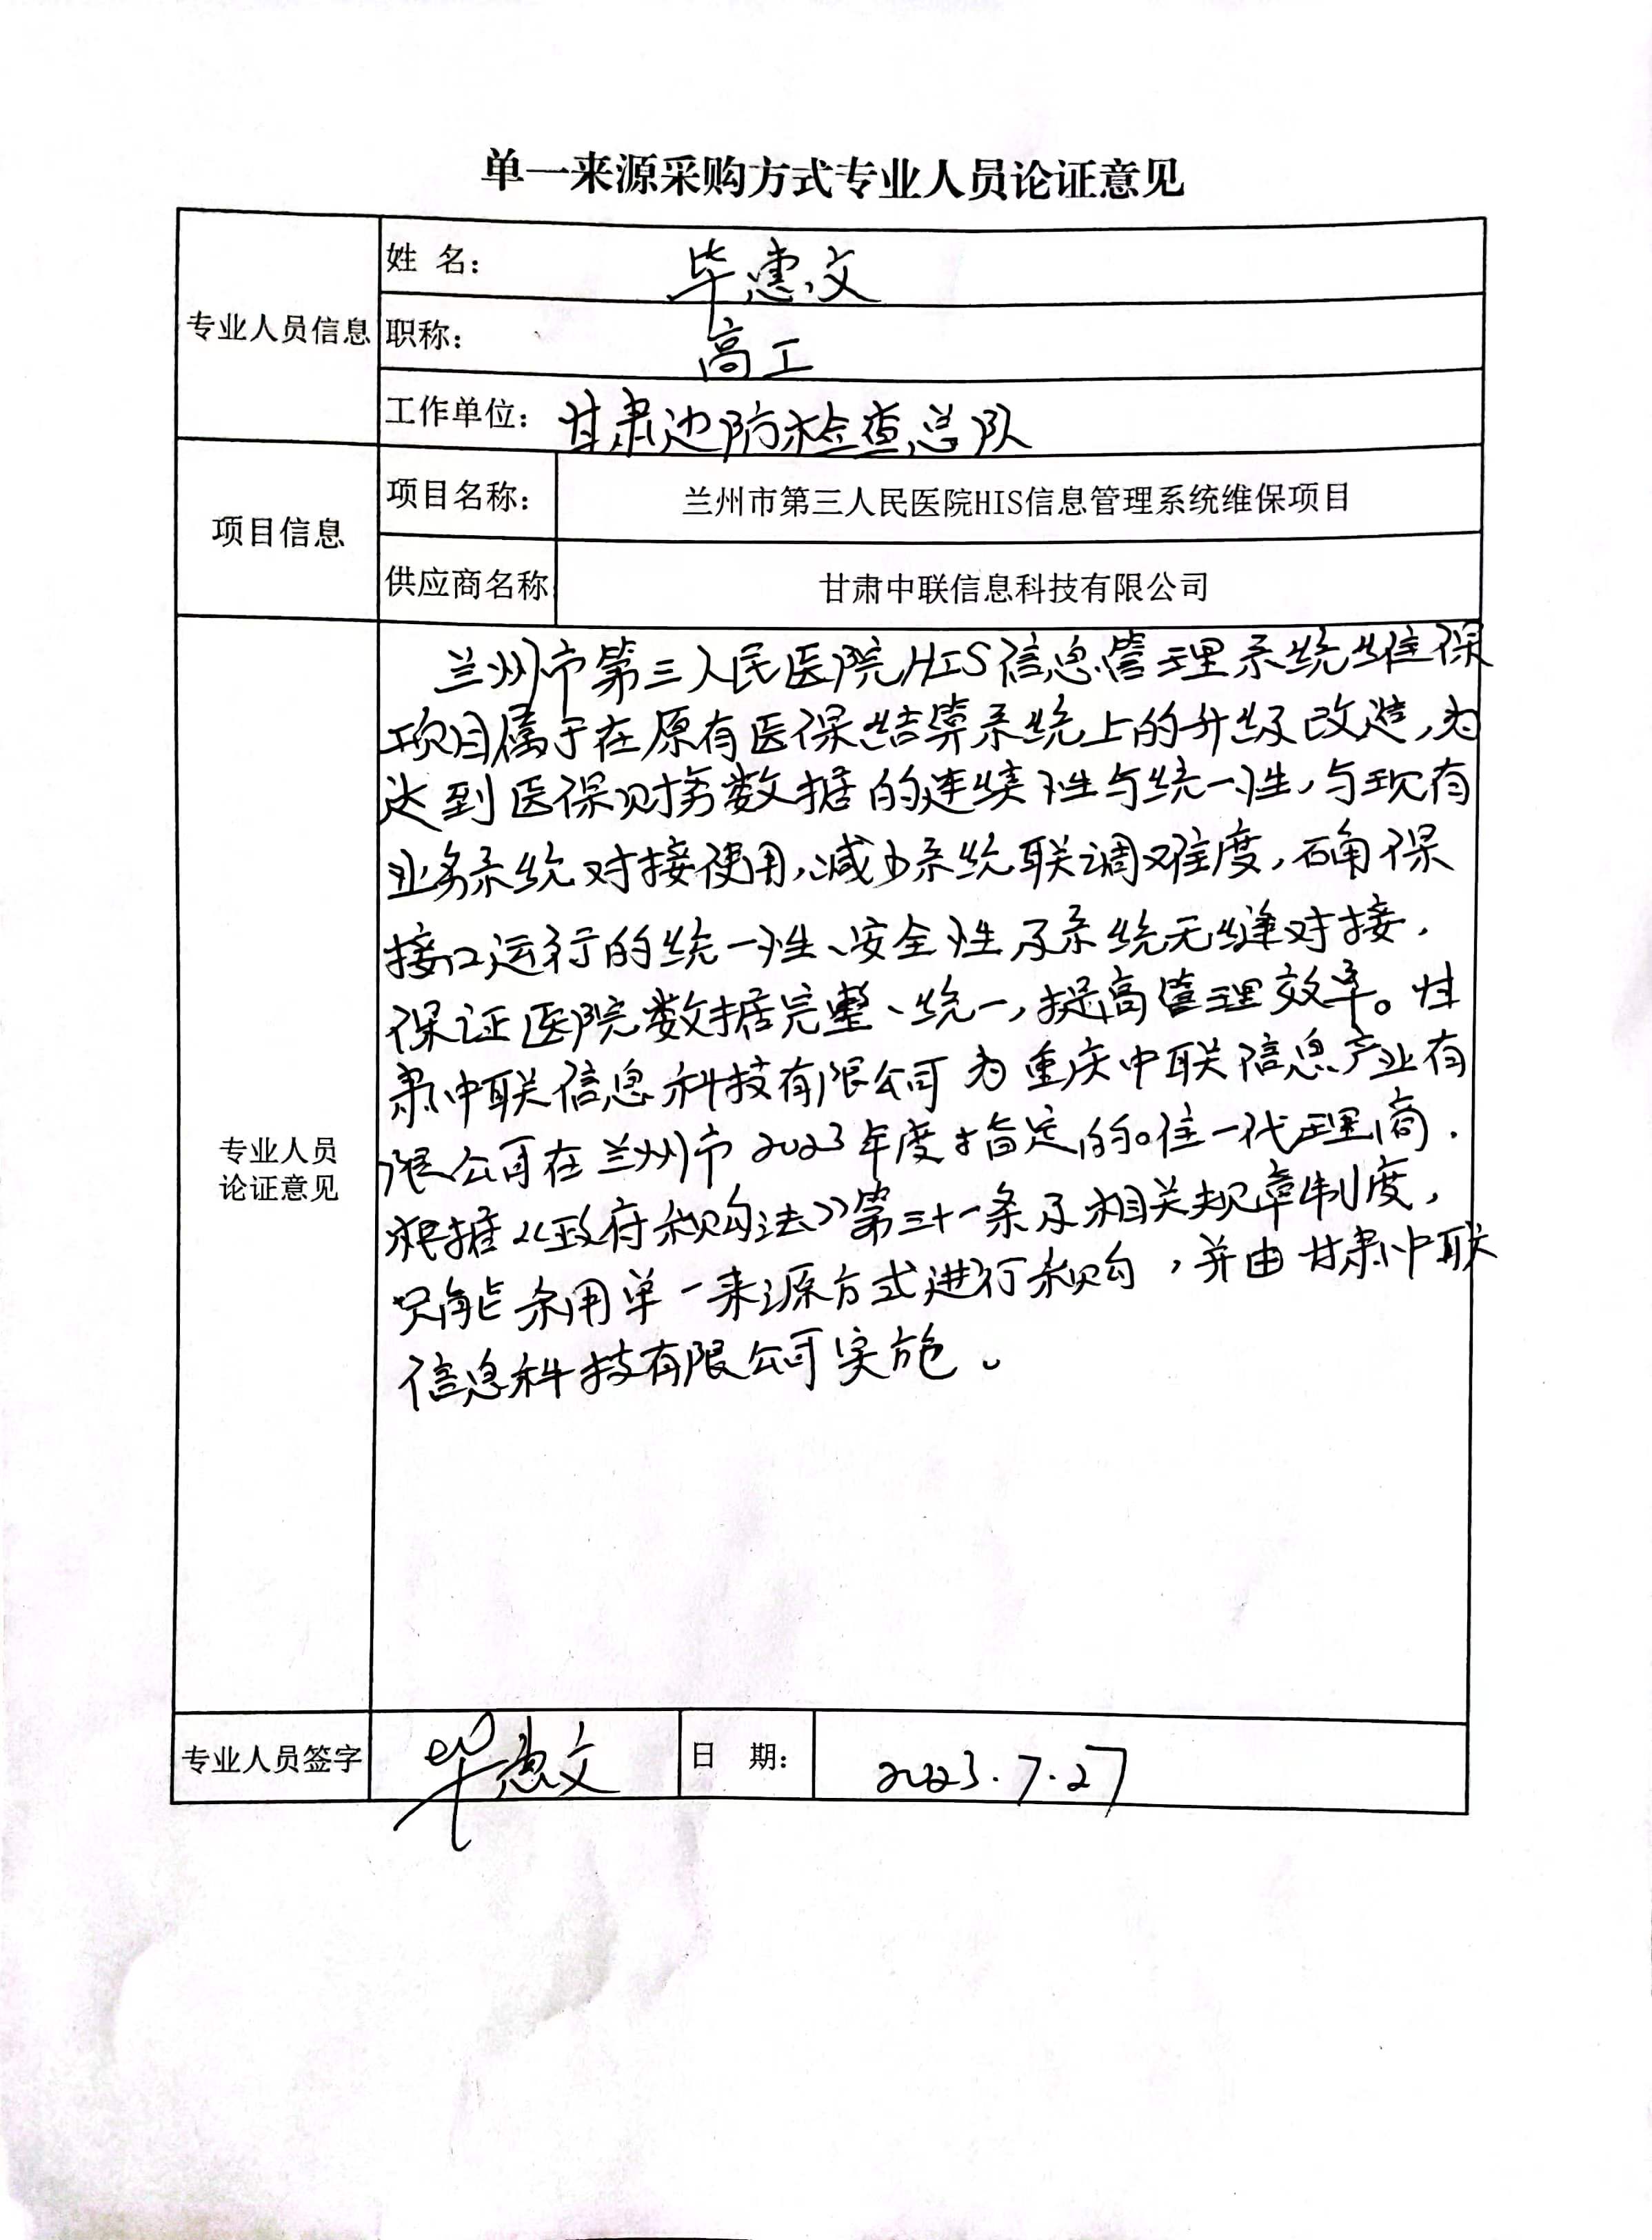 单一来源采购方式专业人员论证意见
专业人员信息
姓 名： 毕惠文
职称： 高工
工作单位： 甘肃边防检查总队
项目信息
项目名称： 兰州市第三人民医院HIS信息管理系统维保项目
供应商名称 甘肃中联信息科技有限公司
专业人员
论证意见
兰州市第三人民医院HIS信息管理系统维保
项目属于在原有医保结算系统上的升级改造，为
达到医保财务数据的连续性与统一性，与现有
业务系统对接使用，减少系统联调难度，确保
接口运行的统一性、安全性及系统无缝对接，
保证医院数据完整、统一，提高管理效率。甘
肃中联信息科技有限公司为重庆中联信息产业有
限公司在兰州市2023年度指定的唯一代理商．
根据《政府采购法》第三十一条及相关规章制度，
只能采用单一来源方式进行采购，并由甘肃中联
信息科技有限公司实施。
专业人员签字 毕惠文 日 期： 2023.7.27